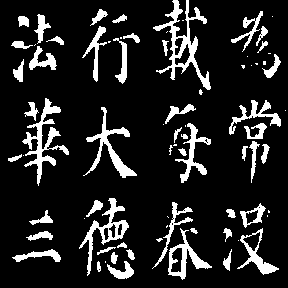 為常没
載每春
行大德
法華三